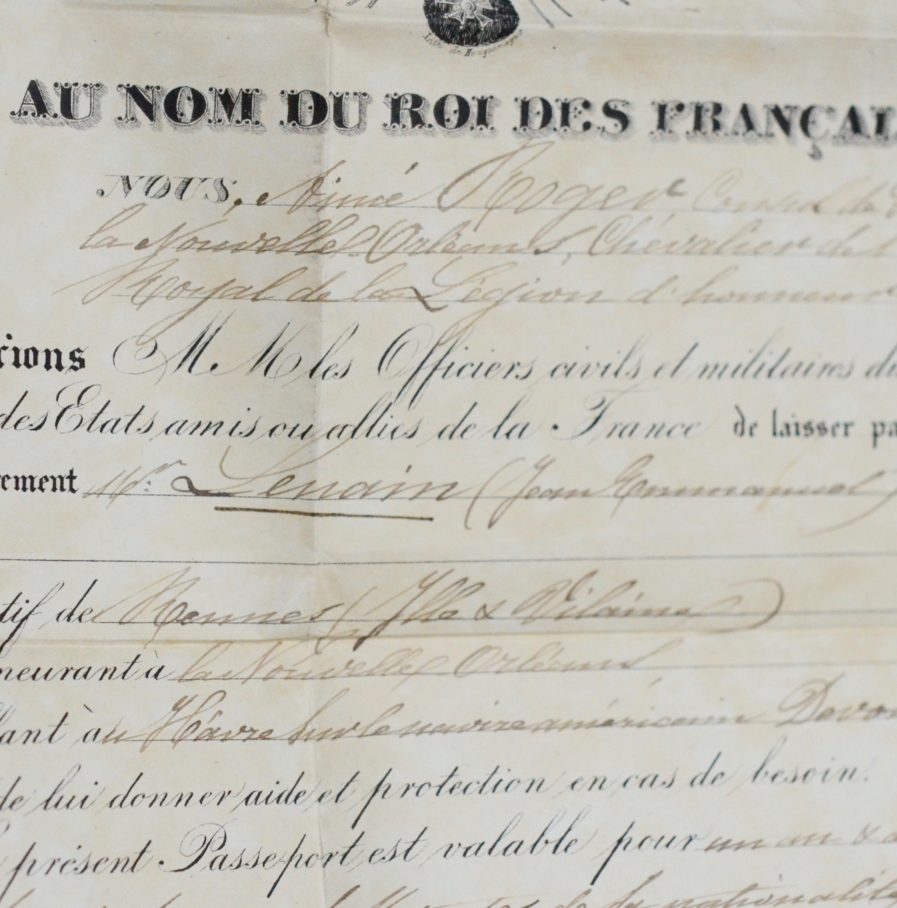 AU NOM DU ROI DES FRANÇAI
NOUS, Aimé Roger, Consul de
la Nouvelle Orléans, Chevalier de
Royal de la Légion d'honneur
rions MM les Officiers civils et militaires du
des Etats amis ou alliés de la France de laisser pa
rement Mr. Lenain (Jean Emmanuel)
tif de Rennes (Ille & Vilaine)
meurant à la Nouvelle Orléans
lant au Hâvre sur le navire américain Devon
de lui donner aide et protection en cas de besoin.
présent Passeport est valable pour un an &
de la nationalité